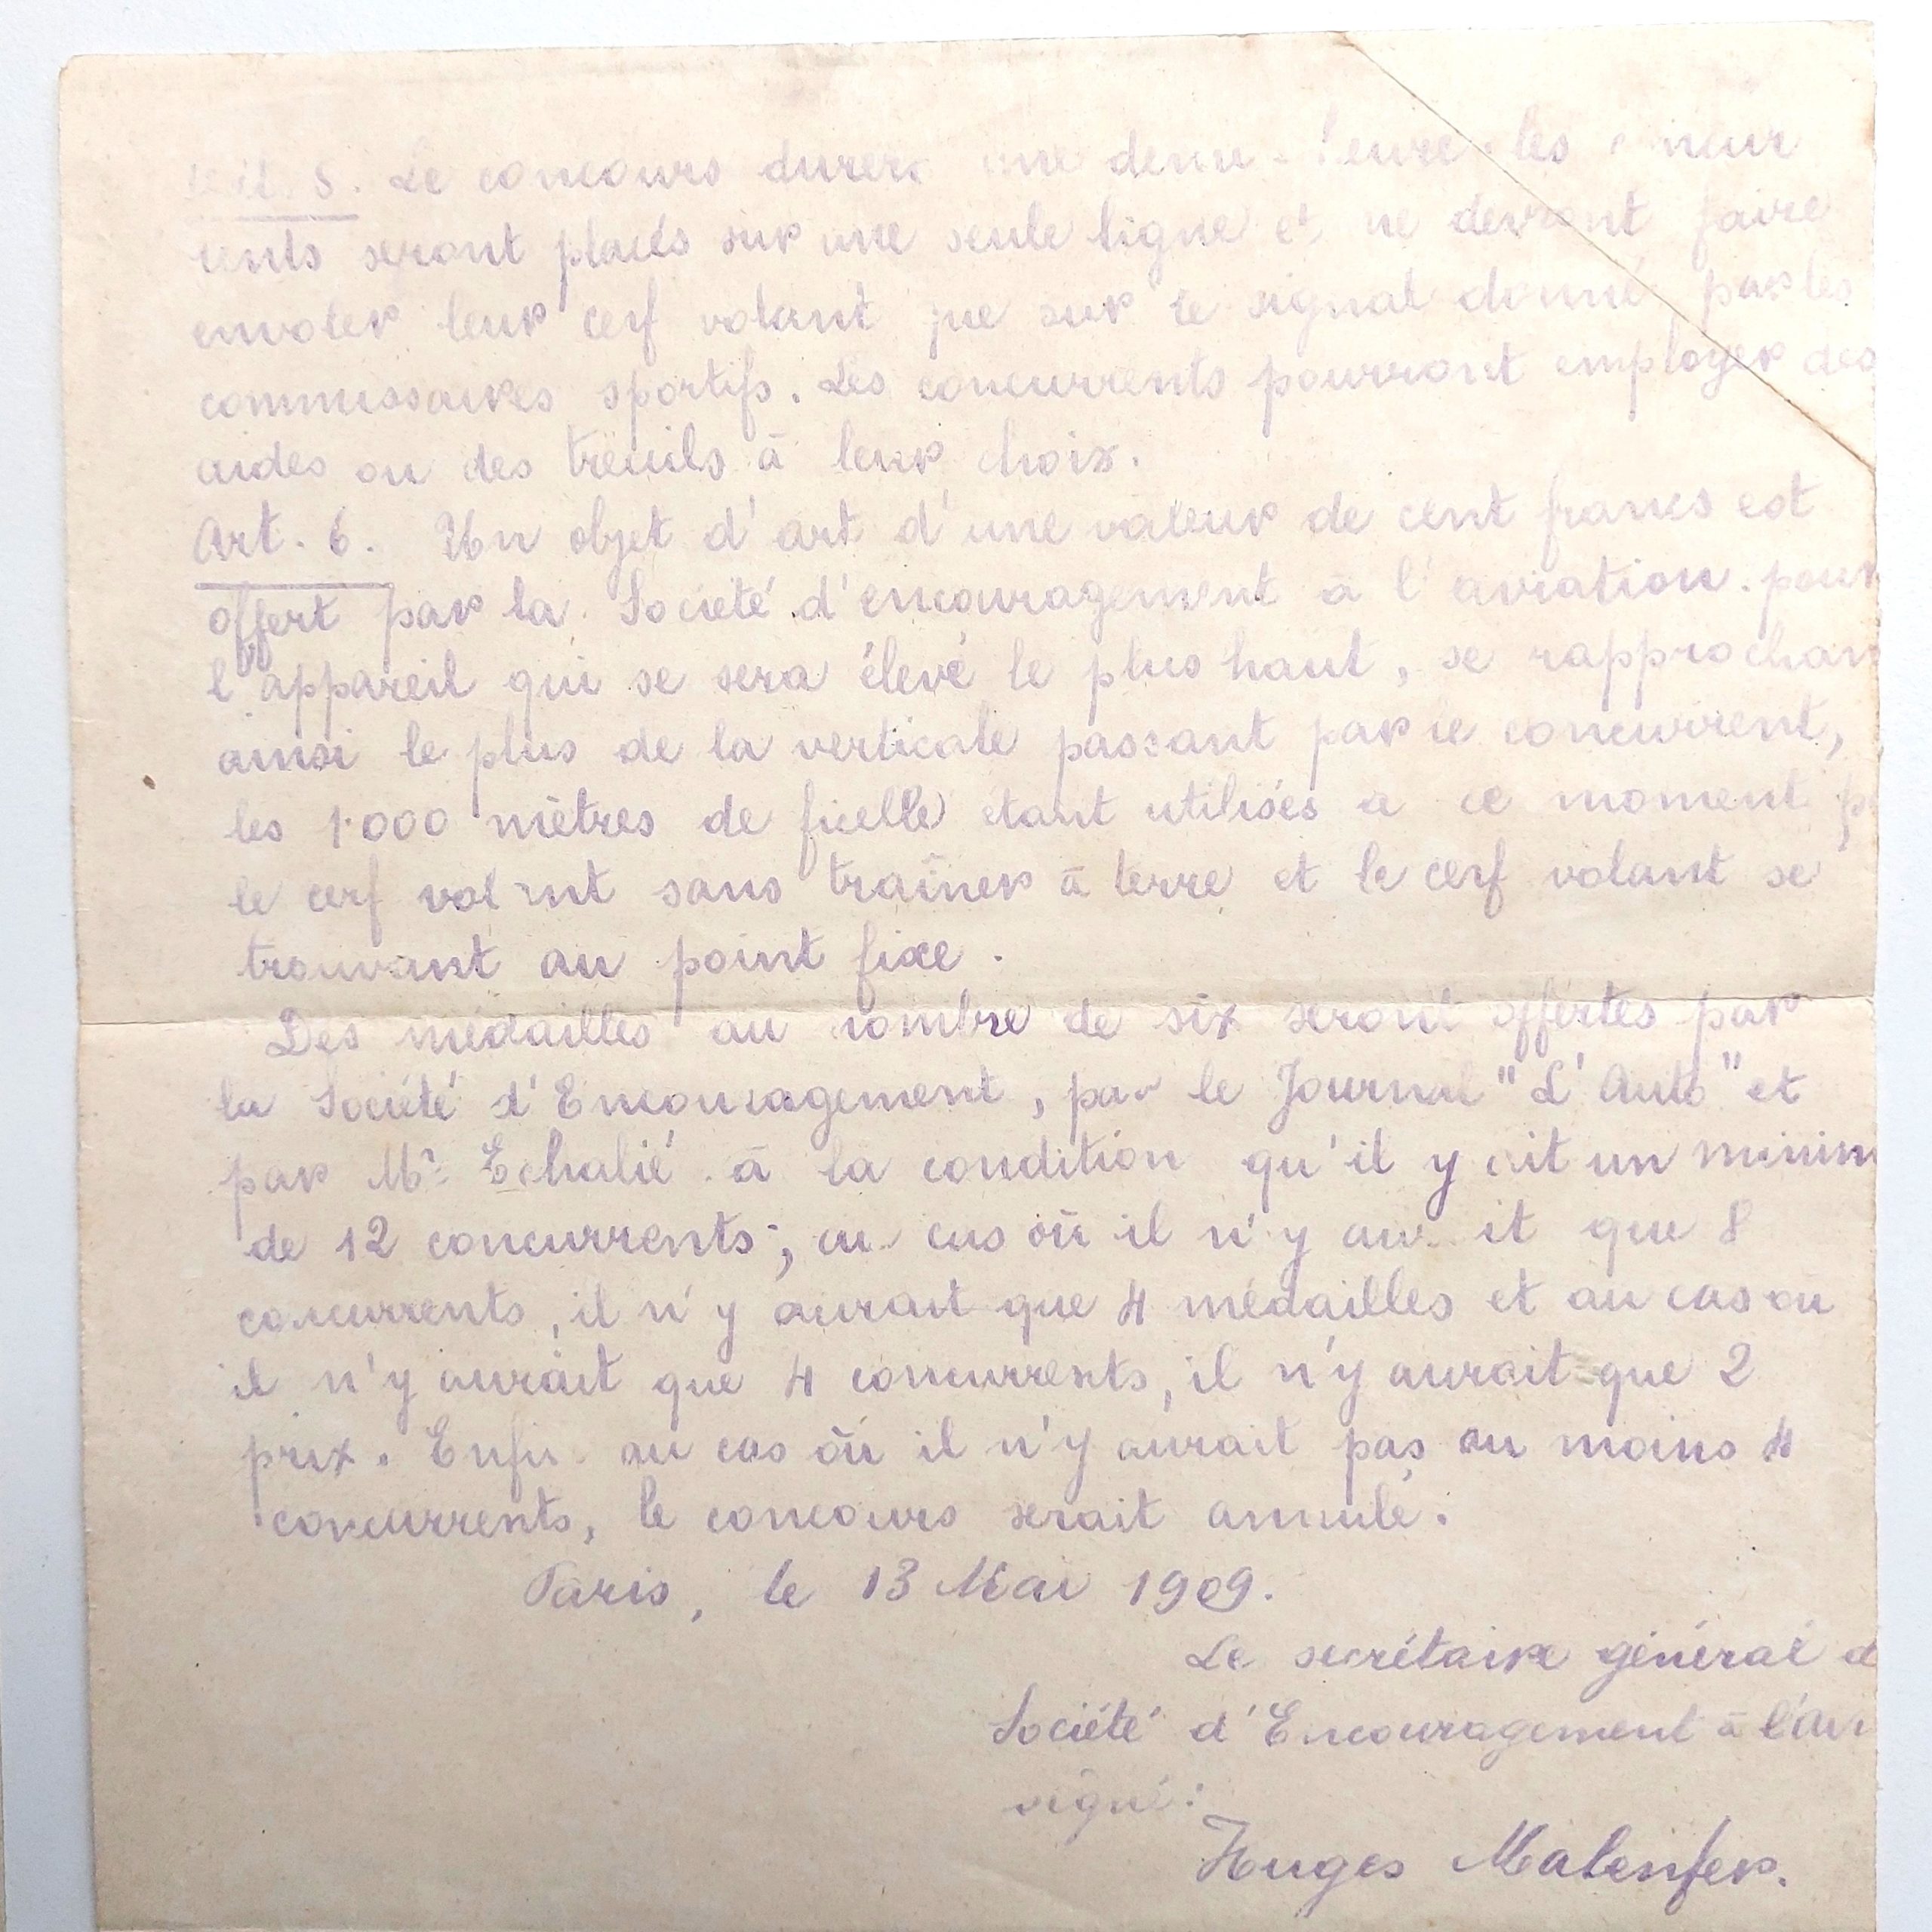 Art. 5. Le concours durera une demi-heure. les concur
rents seront placés sur une seule ligne et ne devront faire
envoler leur cerf volant que sur le signal donné par les
commissaires sportifs. Les concurrents pourront employer des
aides ou des treuils à leur choix.
Art. 6. Un objet d'art d'une valeur de cent francs est
offert par la Société d'encouragement à l'aviation. pour
l'appareil qui se sera élevé le plus haut, se rapprochan
ainsi le plus de la verticale passant par le concurrent,
les 1.000 mètres de ficelle étant utilisés à ce moment p
le cerf volant sans traîner à terre et le cerf volant se
trouvant au point fixe.
Des médailles au nombre de six seront offertes par
la Société d'Encouragement, par le Journal "L'Auto" et
par Mr. Echalié à la condition qu'il y ait un minim
de 12 concurrents; au cas où il n'y aurait que 8
concurrents, il n'y aurait que 4 médailles et au cas où
il n'y aurait que 4 concurrents, il n'y aurait que 2
prix. Enfin au cas où il n'y aurait pas au moins 4
concurrents, le concours serait annulé.
Paris, le 13 Mai 1909.
Le secrétaire général d
Société d'Encouragement à l'Avi
signé:
Huges Malenfer.